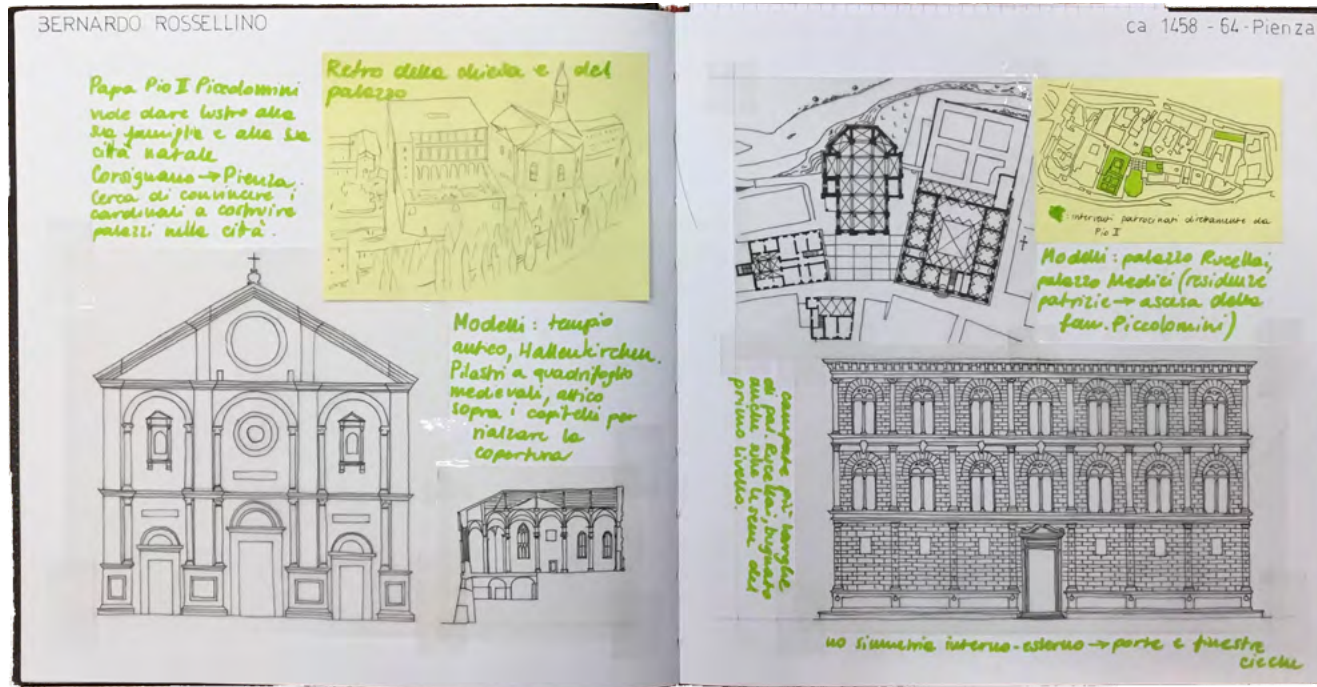 BERNARDO ROSSELLINO
Papa Pio II Piccolomini
vuole dare lustro alla
sua famiglia e alla sua
città natale
Corsignano → Pienza.
Cerca di convincere i
cardinali a costruire
palazzi nella città.
Retro della chiesa e del
palazzo
Modelli: tempio
antico, Hallenkirchen.
Pilastri a quadrifoglio
medievali, attico
sopra i capitelli per
rialzare la
copertura
ca 1458 - 64 - Pienza
: interventi patrocinati direttamente da
Pio II
Modelli: palazzo Rucellai,
palazzo Medici (residenze
patrizie → ascesa della
fam. Piccolomini)
campate più larghe
di pal. Rucellai, bugnato
anche sulle lesene del
primo livello.
no simmetria interno-esterno → porte e finestre
cieche